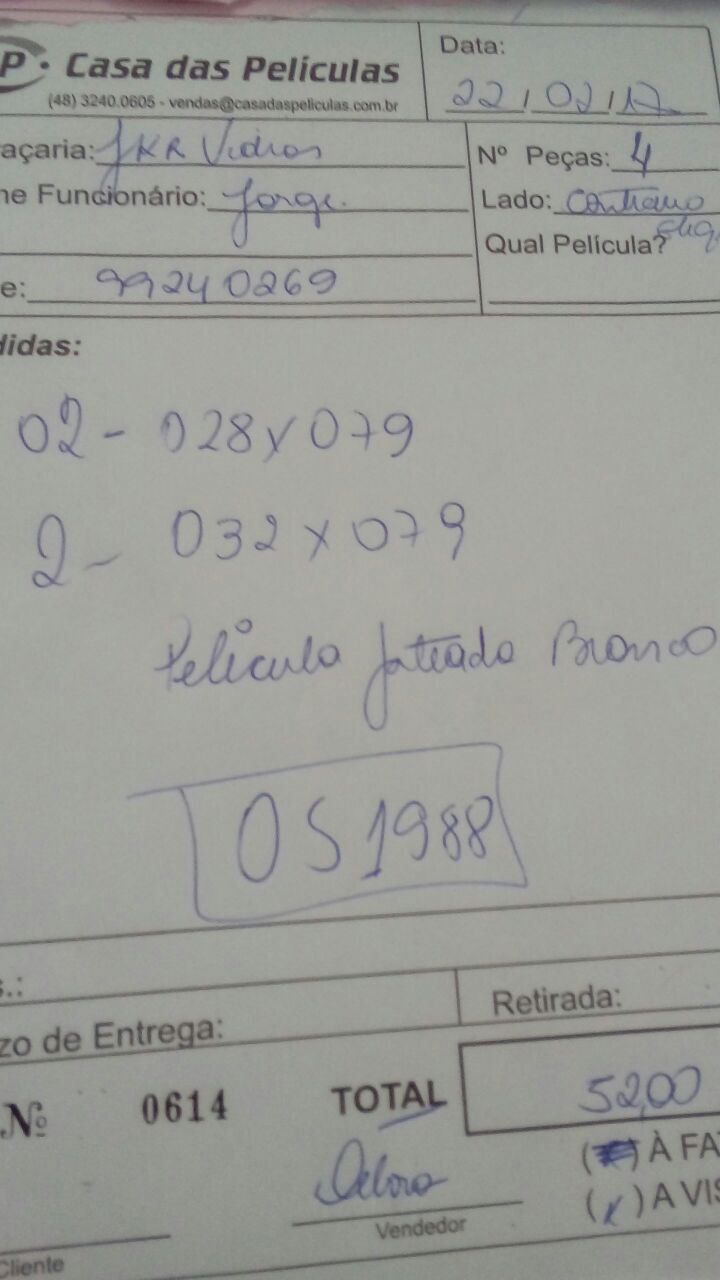 P · Casa das Películas
(48) 3240.0605 - vendas@casadaspeliculas.com.br
Data: 22/02/17
açaria: JKR Vidros
Nº Peças: 4
ne Funcionário: Jorge.
Lado: Contrario
Qual Película?
e: 99240269
didas:
02 - 028x079
2 - 032x079
Película Jateado Branco
OS 1988
s.:
zo de Entrega:
Retirada:
Nº 0614
TOTAL 52,00
( ) À FA
(x) A VIS
Debora
Vendedor
Cliente